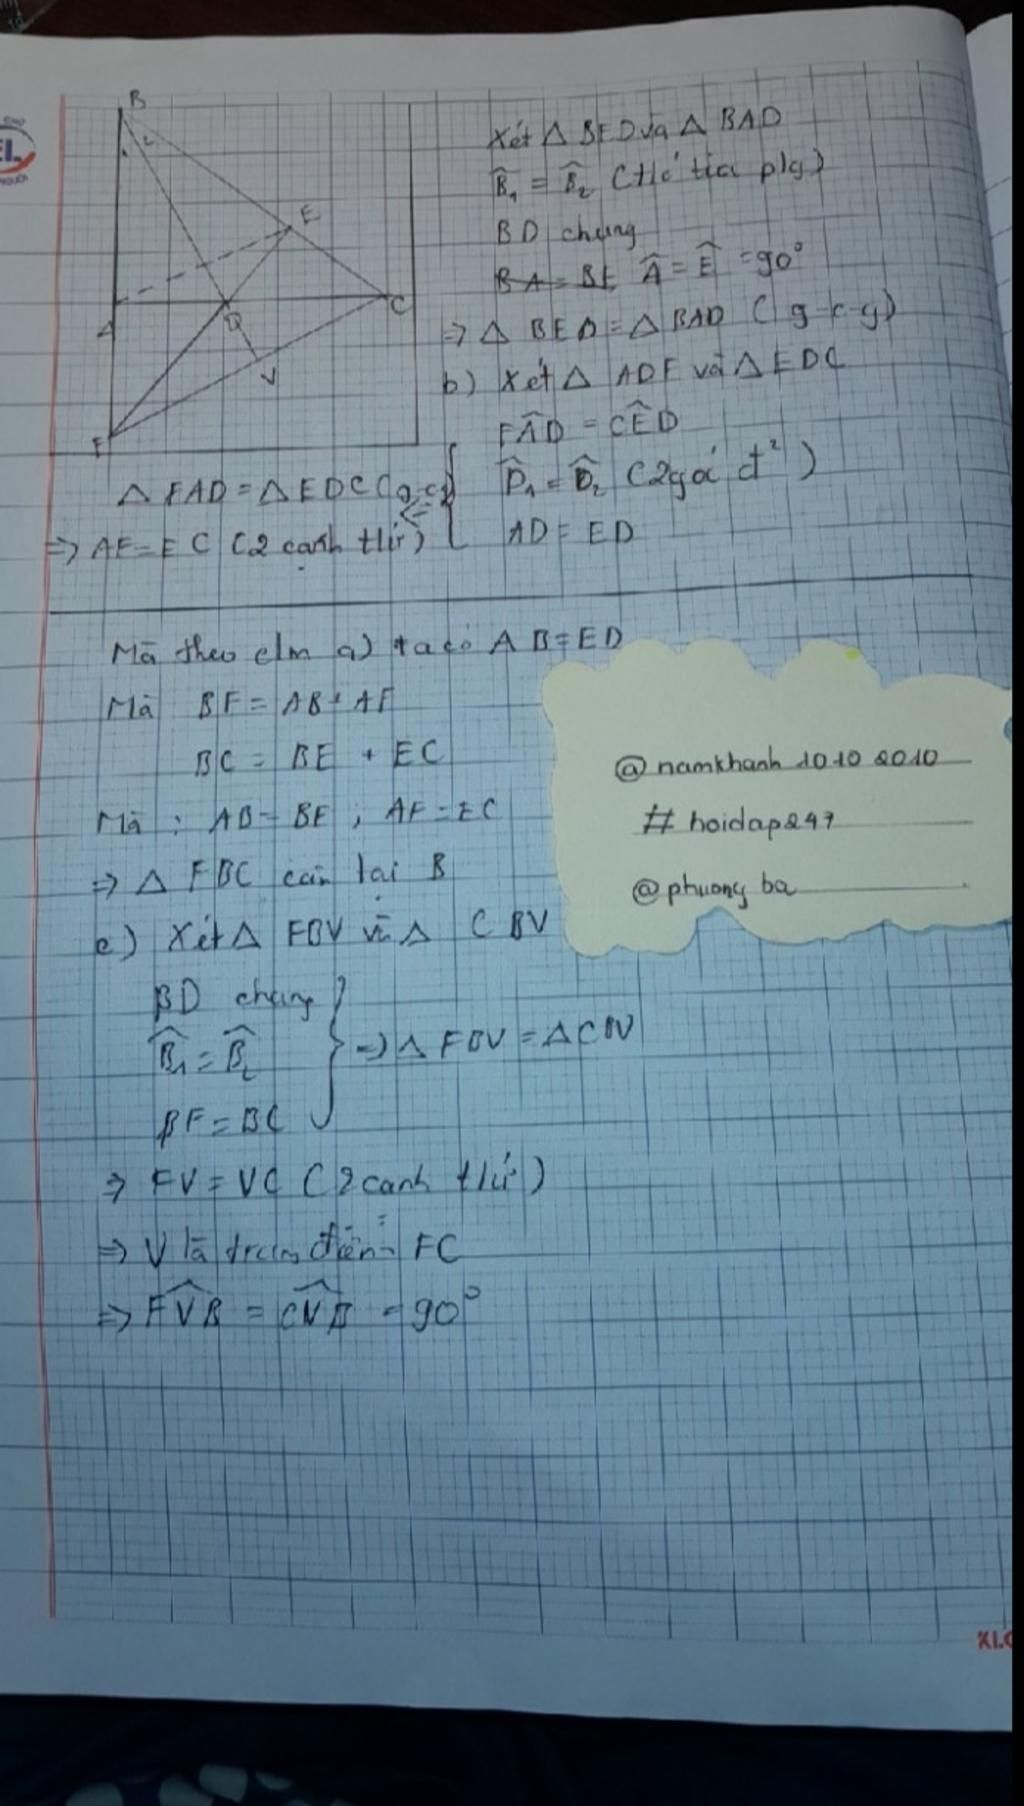 B
E
A
D
C
V
F
Xét Δ BED và Δ BAD
B̂₁ = B̂₂ (t/c tia p/g)
BD chung
BA = BE Â = Ê = 90°
=> Δ BED = Δ BAD (g-c-g)
b) Xét Δ ADF và Δ EDC
FÂD = CÊD
D̂₁ = D̂₂ (2 góc đ²)
AD = ED
Δ FAD = Δ EDC
=> AF = EC (2 cạnh t/ứ)
Mà theo clm a) ta có AB = ED
Mà BF = AB + AF
BC = BE + EC
Mà : AB = BE ; AF = EC
=> Δ FBC cân tại B
c) Xét Δ FBV và Δ CBV
BD chung
B̂₁ = B̂₂
BF = BC
=> Δ FBV = Δ CBV
=> FV = VC (2 canh t/ứ)
=> V là trung điểm FC
=> FV̂B = CV̂B = 90°
@namkhanh 10102010
# hoidap247
@phuong ba